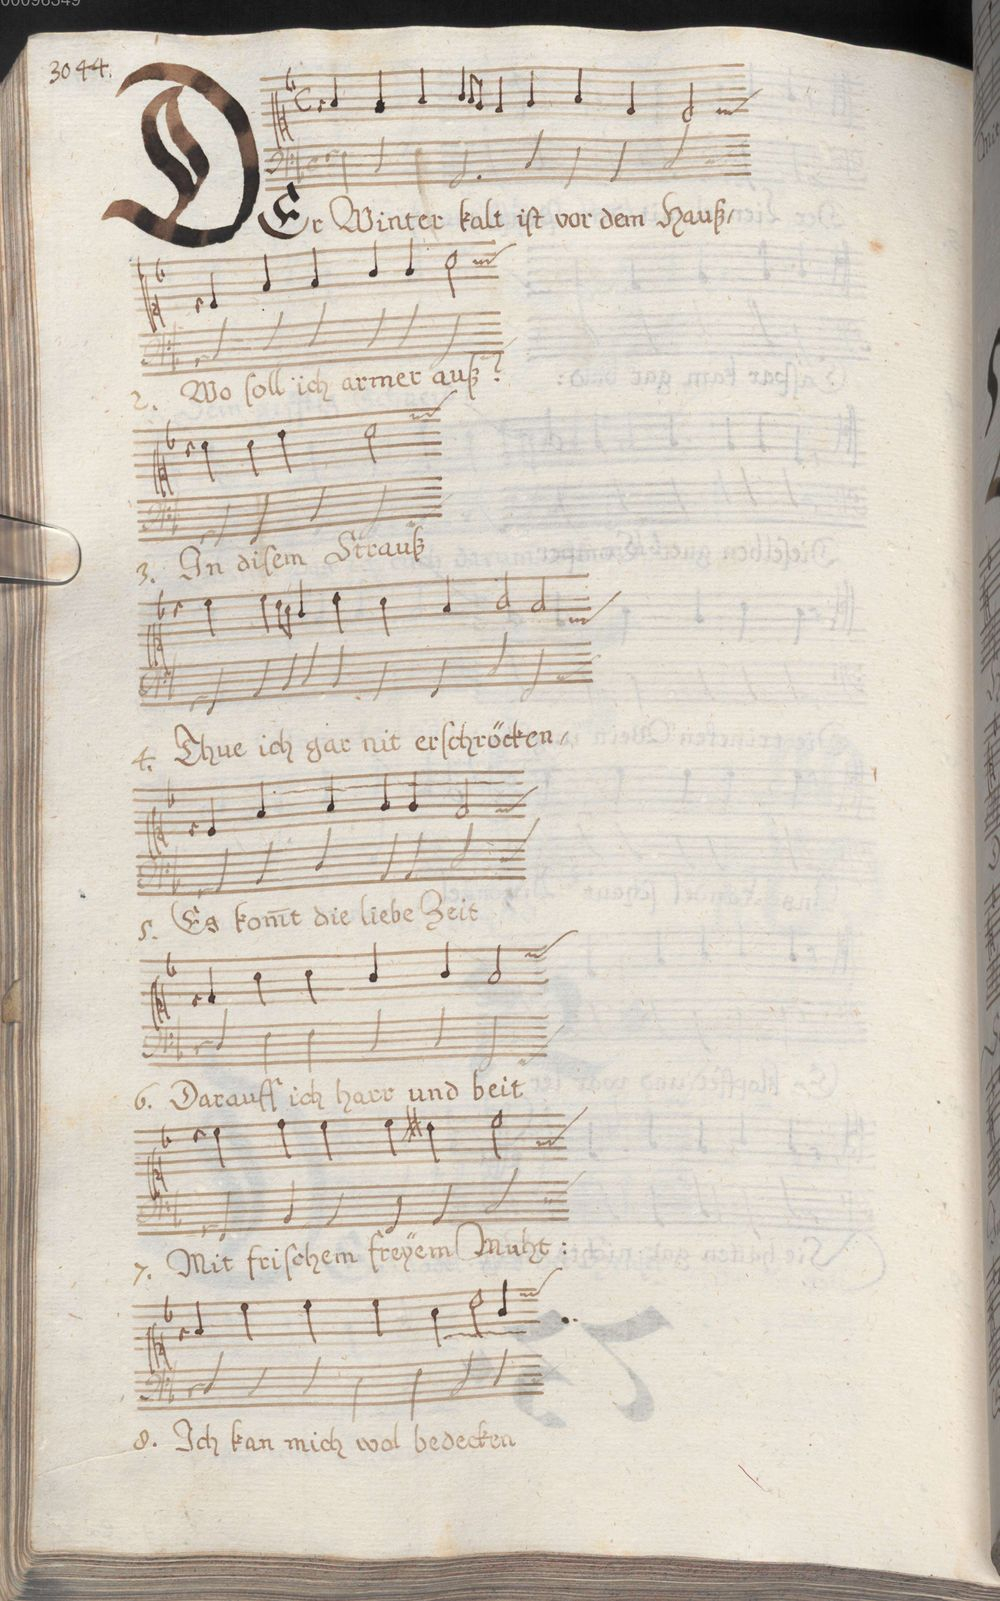 00096349
3044.
DEr Winter kalt ist vor dem Hauß/
2. Wo soll ich armer auß?
3. In disem Strauß
4. Thue ich gar nit erschröcken/
5. Es kom̄t die liebe Zeit
6. Darauff ich harr und beit
7. Mit frischem freÿem Muht:
8. Ich kan mich wol bedecken